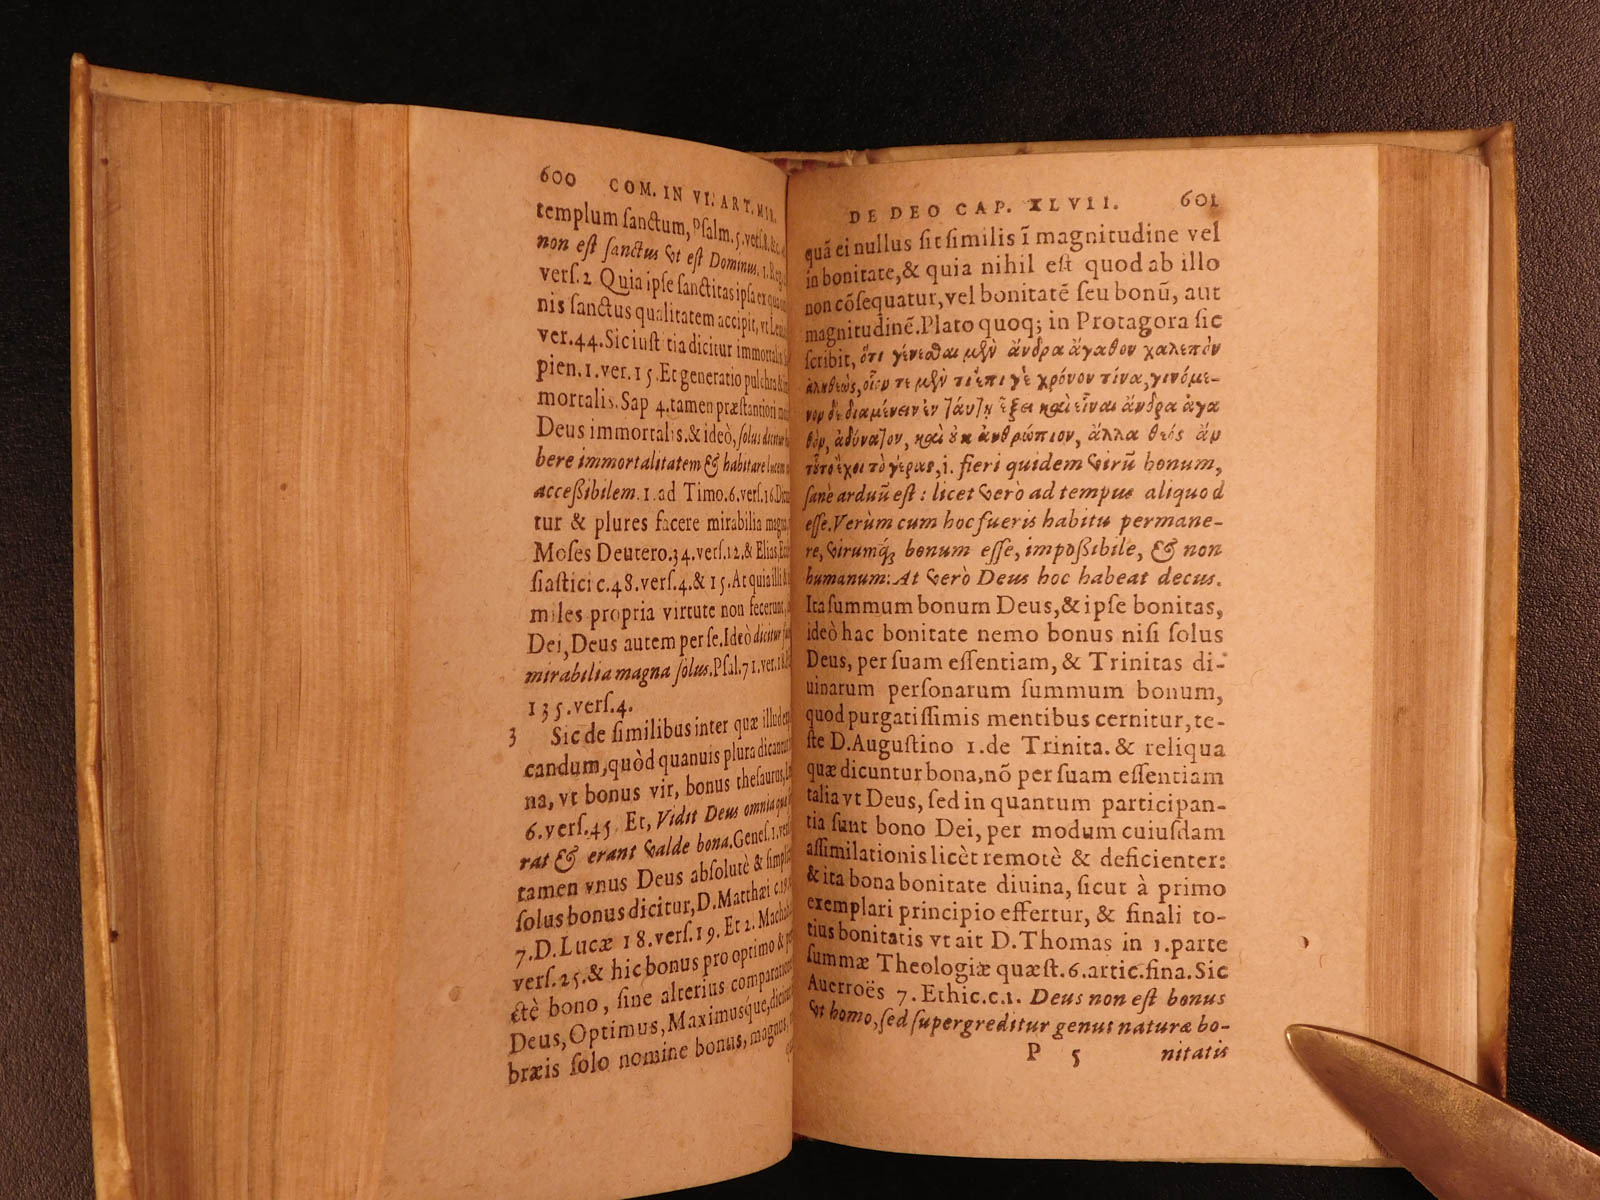 600 COM. IN VI. ART. MYS.
templum ſanctum, Pſalm. 5. verſ. 8. &c.
non eſt ſanctus vt eſt Dominus. 1. Reg.
verſ. 2 Quia ipſe ſanctitas ipſa ex qua
nis ſanctus qualitatem accipit, vt
ver. 44. Sic iuſtitia dicitur immortalis
pien. 1. ver. 15. Et generatio pulchra &
mortalis. Sap 4. tamen præſtantiori
Deus immortalis. & ideò, ſolus dicitur
bere immortalitatem & habitare lucem
acceßibilem. 1. ad Timo. 6. verſ. 16.
tur & plures facere mirabilia magna,
Moſes Deutero. 34. verſ. 12. & Elias,
ſiaſtici c. 48. verſ. 4. & 15. At quia illi
miles propria virtute non fecerunt,
Dei, Deus autem per ſe. Ideò dicitur
mirabilia magna ſolus. Pſal. 71. ver. 18.
135. verſ. 4.
3 Sic de ſimilibus inter quæ illud
candum, quòd quanuis plura dicantur
na, vt bonus vir, bonus theſaurus,
6. verſ. 45 Et, Vidit Deus omnia quæ
rat & erant valde bona. Geneſ. 1. verſ.
tamen vnus Deus abſolutè &
ſolus bonus dicitur, D. Matthæi c. 19.
7. D. Lucæ 18. verſ. 19. Et 2. Machab.
verſ. 25. & hic bonus pro optimo &
ctè bono, ſine alterius comparatione
Deus, Optimus, Maximusque, dicitur
bræis ſolo nomine bonus, magnus,
DE DEO CAP. XLVII. 601
quã ei nullus ſit ſimilis ĩ magnitudine vel
in bonitate, & quia nihil eſt quod ab illo
non cõſequatur, vel bonitatẽ ſeu bonũ, aut
magnitudinẽ. Plato quoq; in Protagora ſic
ſcribit, ὅτι γένεσθαι μὲν ἄνδρα ἄγαθον χαλεπὸν
ἀληθεῶς, οἷον τε μὲν τι ἐπι γὲ χρόνον τίνα, γινόμε-
νον δὲ διαμένειν ἐν ταύτῃ ἕξει καὶ εἶναι ἄνδρα ἀγα
θὸν, ἀδύνατον, καὶ ὀκ ἀνθρώπιον, ἄλλα θεὸς ἂν
τοῦτο ἔχοι τὸ γέρας, i. fieri quidem virũ bonum,
ſanè arduũ eſt: licet verò ad tempus aliquod
eſſe. Verùm cum hoc fueris habitu permane-
re, virumq; bonum eſſe, impoßibile, & non
humanum: At verò Deus hoc habeat decus.
Ita ſummum bonum Deus, & ipſe bonitas,
ideò hac bonitate nemo bonus niſi ſolus
Deus, per ſuam eſſentiam, & Trinitas di-
uinarum perſonarum ſummum bonum,
quod purgatiſſimis mentibus cernitur, te-
ſte D. Auguſtino 1. de Trinita. & reliqua
quæ dicuntur bona, nõ per ſuam eſſentiam
talia vt Deus, ſed in quantum participan-
tia ſunt bono Dei, per modum cuiuſdam
aſſimilationis licèt remotè & deficienter:
& ita bona bonitate diuina, ſicut à primo
exemplari principio effertur, & finali to-
tius bonitatis vt ait D. Thomas in 1. parte
ſummæ Theologiæ quæſt. 6. artic. fina. Sic
Auerroës 7. Ethic. c. 1. Deus non eſt bonus
vt homo, ſed ſupergreditur genus naturæ bo-
P 5 nitatis